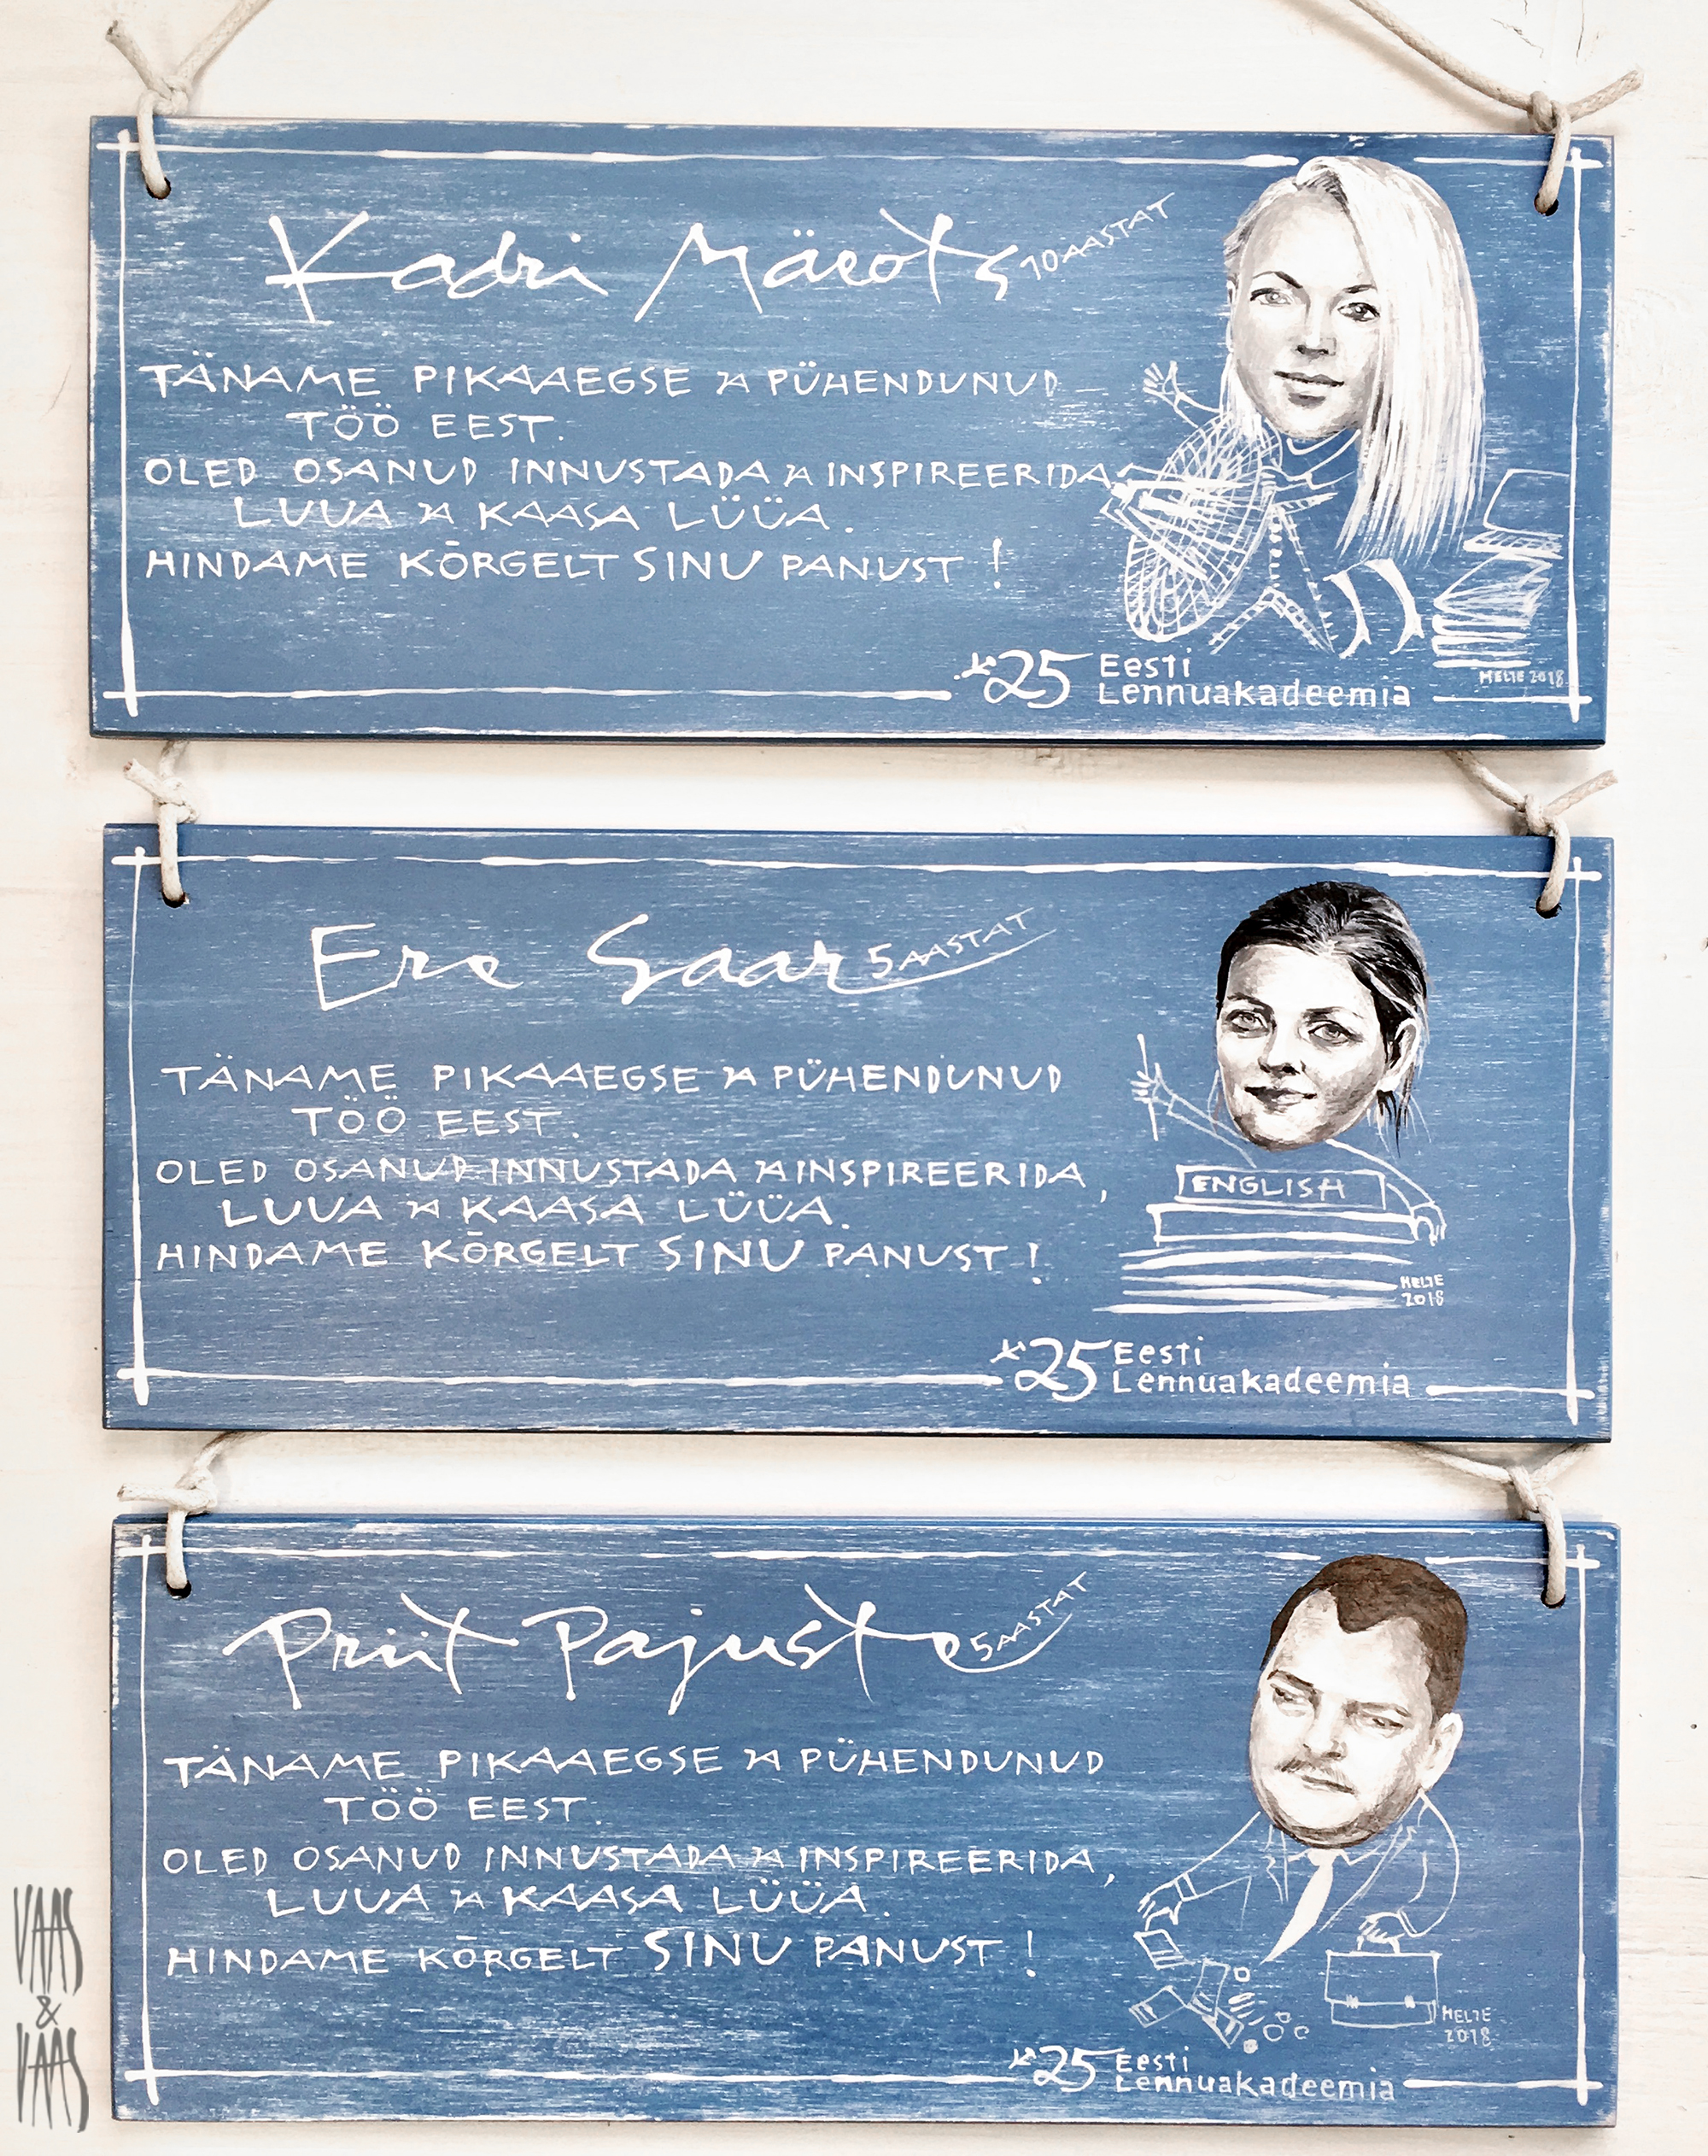 Kadri Mäeots 10 AASTAT
TÄNAME PIKAAEGSE JA PÜHENDUNUD
TÖÖ EEST.
OLED OSANUD INNUSTADA JA INSPIREERIDA,
LUUA JA KAASA LÜÜA.
HINDAME KÕRGELT SINU PANUST !
25 Eesti
Lennuakadeemia
MELJE 2018
Ere Saar 5 AASTAT
TÄNAME PIKAAEGSE JA PÜHENDUNUD
TÖÖ EEST.
OLED OSANUD INNUSTADA JA INSPIREERIDA,
LUUA JA KAASA LÜÜA.
HINDAME KÕRGELT SINU PANUST !
ENGLISH
MELJE
2018
25 Eesti
Lennuakadeemia
Priit Pajuste 5 AASTAT
TÄNAME PIKAAEGSE JA PÜHENDUNUD
TÖÖ EEST.
OLED OSANUD INNUSTADA JA INSPIREERIDA,
LUUA JA KAASA LÜÜA.
HINDAME KÕRGELT SINU PANUST !
MELJE
2018
25 Eesti
Lennuakadeemia
VAAS
&
VAAS